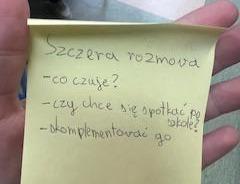 Szczera rozmova
-co czuje?
-czy chce się spotkać po
szkole?
-skomplementować go